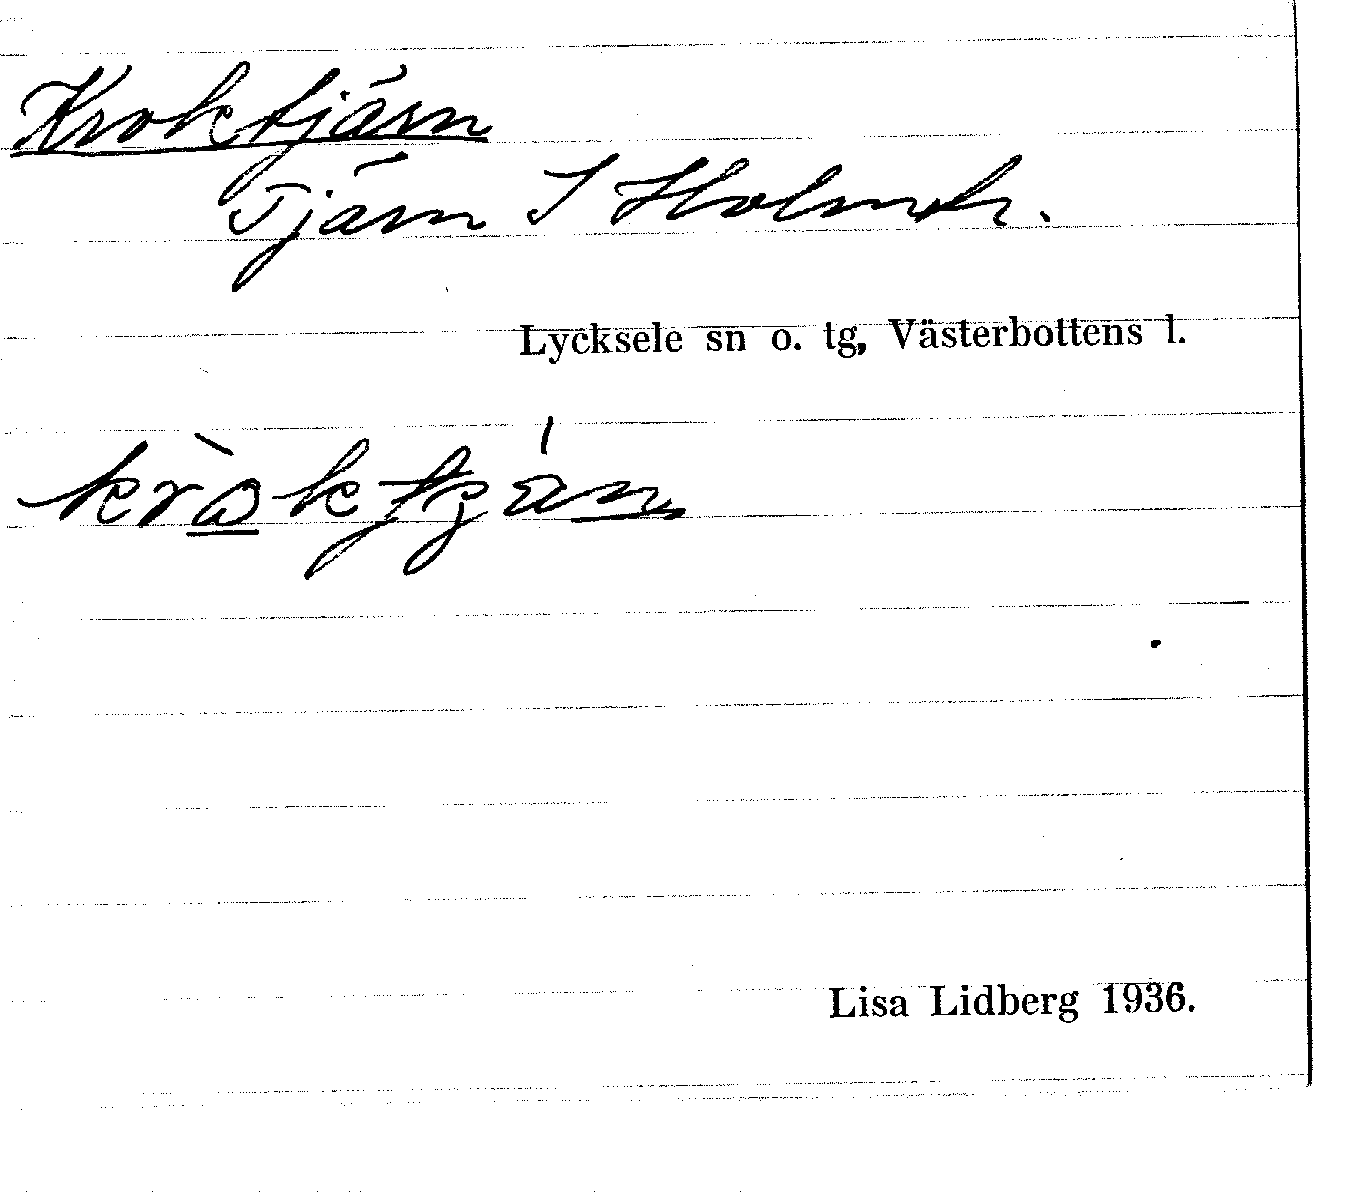 Kroktjärn
Tjärn S Holmtr.
Lycksele sn o. tg, Västerbottens l.
Lisa Lidberg 1936.